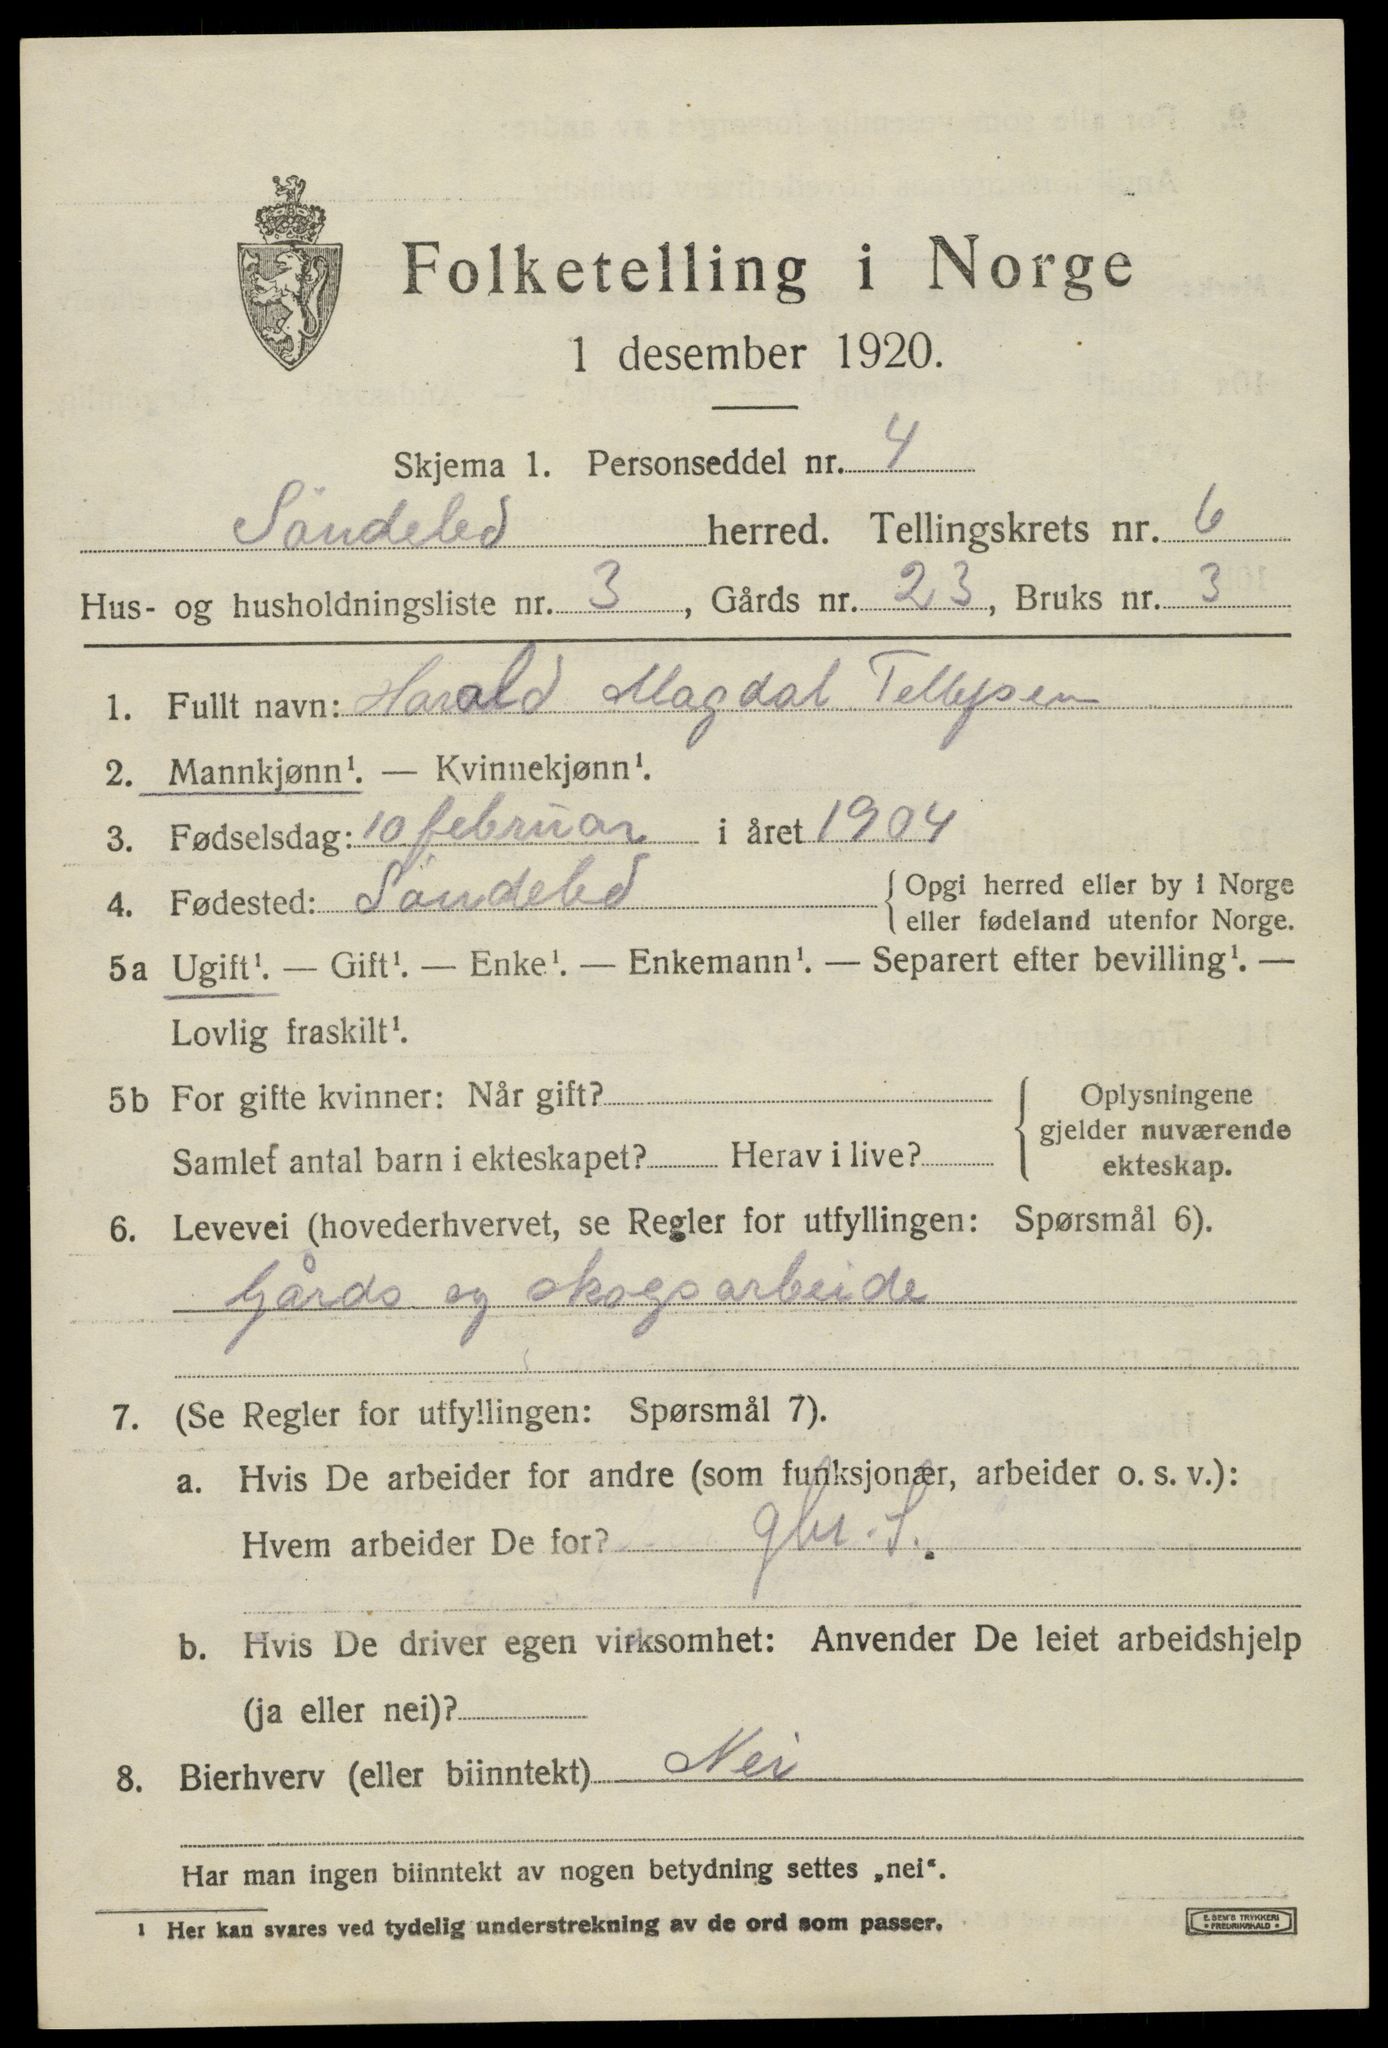 Folketelling i Norge
1 desember 1920.
Skjema 1. Personseddel nr. 4
Söndeled herred. Tellingskrets nr. 6
Hus- og husholdningsliste nr. 3, Gårds nr. 23, Bruks nr. 3
1. Fullt navn: Harald Magdal Tellefsen
2. Mannkjønn¹. — Kvinnekjønn¹.
3. Fødselsdag: 10 februar i året 1904
4. Fødested: Söndeled { Opgi herred eller by i Norge
eller fødeland utenfor Norge.
5a Ugift¹. — Gift¹. — Enke¹. — Enkemann¹. — Separert efter bevilling¹. —
Lovlig fraskilt¹.
5b For gifte kvinner: Når gift? { Oplysningene
gjelder nuværende
Samlet antal barn i ekteskapet? Herav i live? ekteskap.
6. Levevei (hovederhvervet, se Regler for utfyllingen: Spørsmål 6).
Gårds og skogsarbeide
7. (Se Regler for utfyllingen: Spørsmål 7).
a. Hvis De arbeider for andre (som funksjonær, arbeider o. s. v.):
Hvem arbeider De for? gbr. S.
b. Hvis De driver egen virksomhet: Anvender De leiet arbeidshjelp
(ja eller nei)?
8. Bierhverv (eller biinntekt) Nei
Har man ingen biinntekt av nogen betydning settes „nei“.
¹ Her kan svares ved tydelig understrekning av de ord som passer.
E. SEM'S TRYKKERI
FREDRIKSHALD